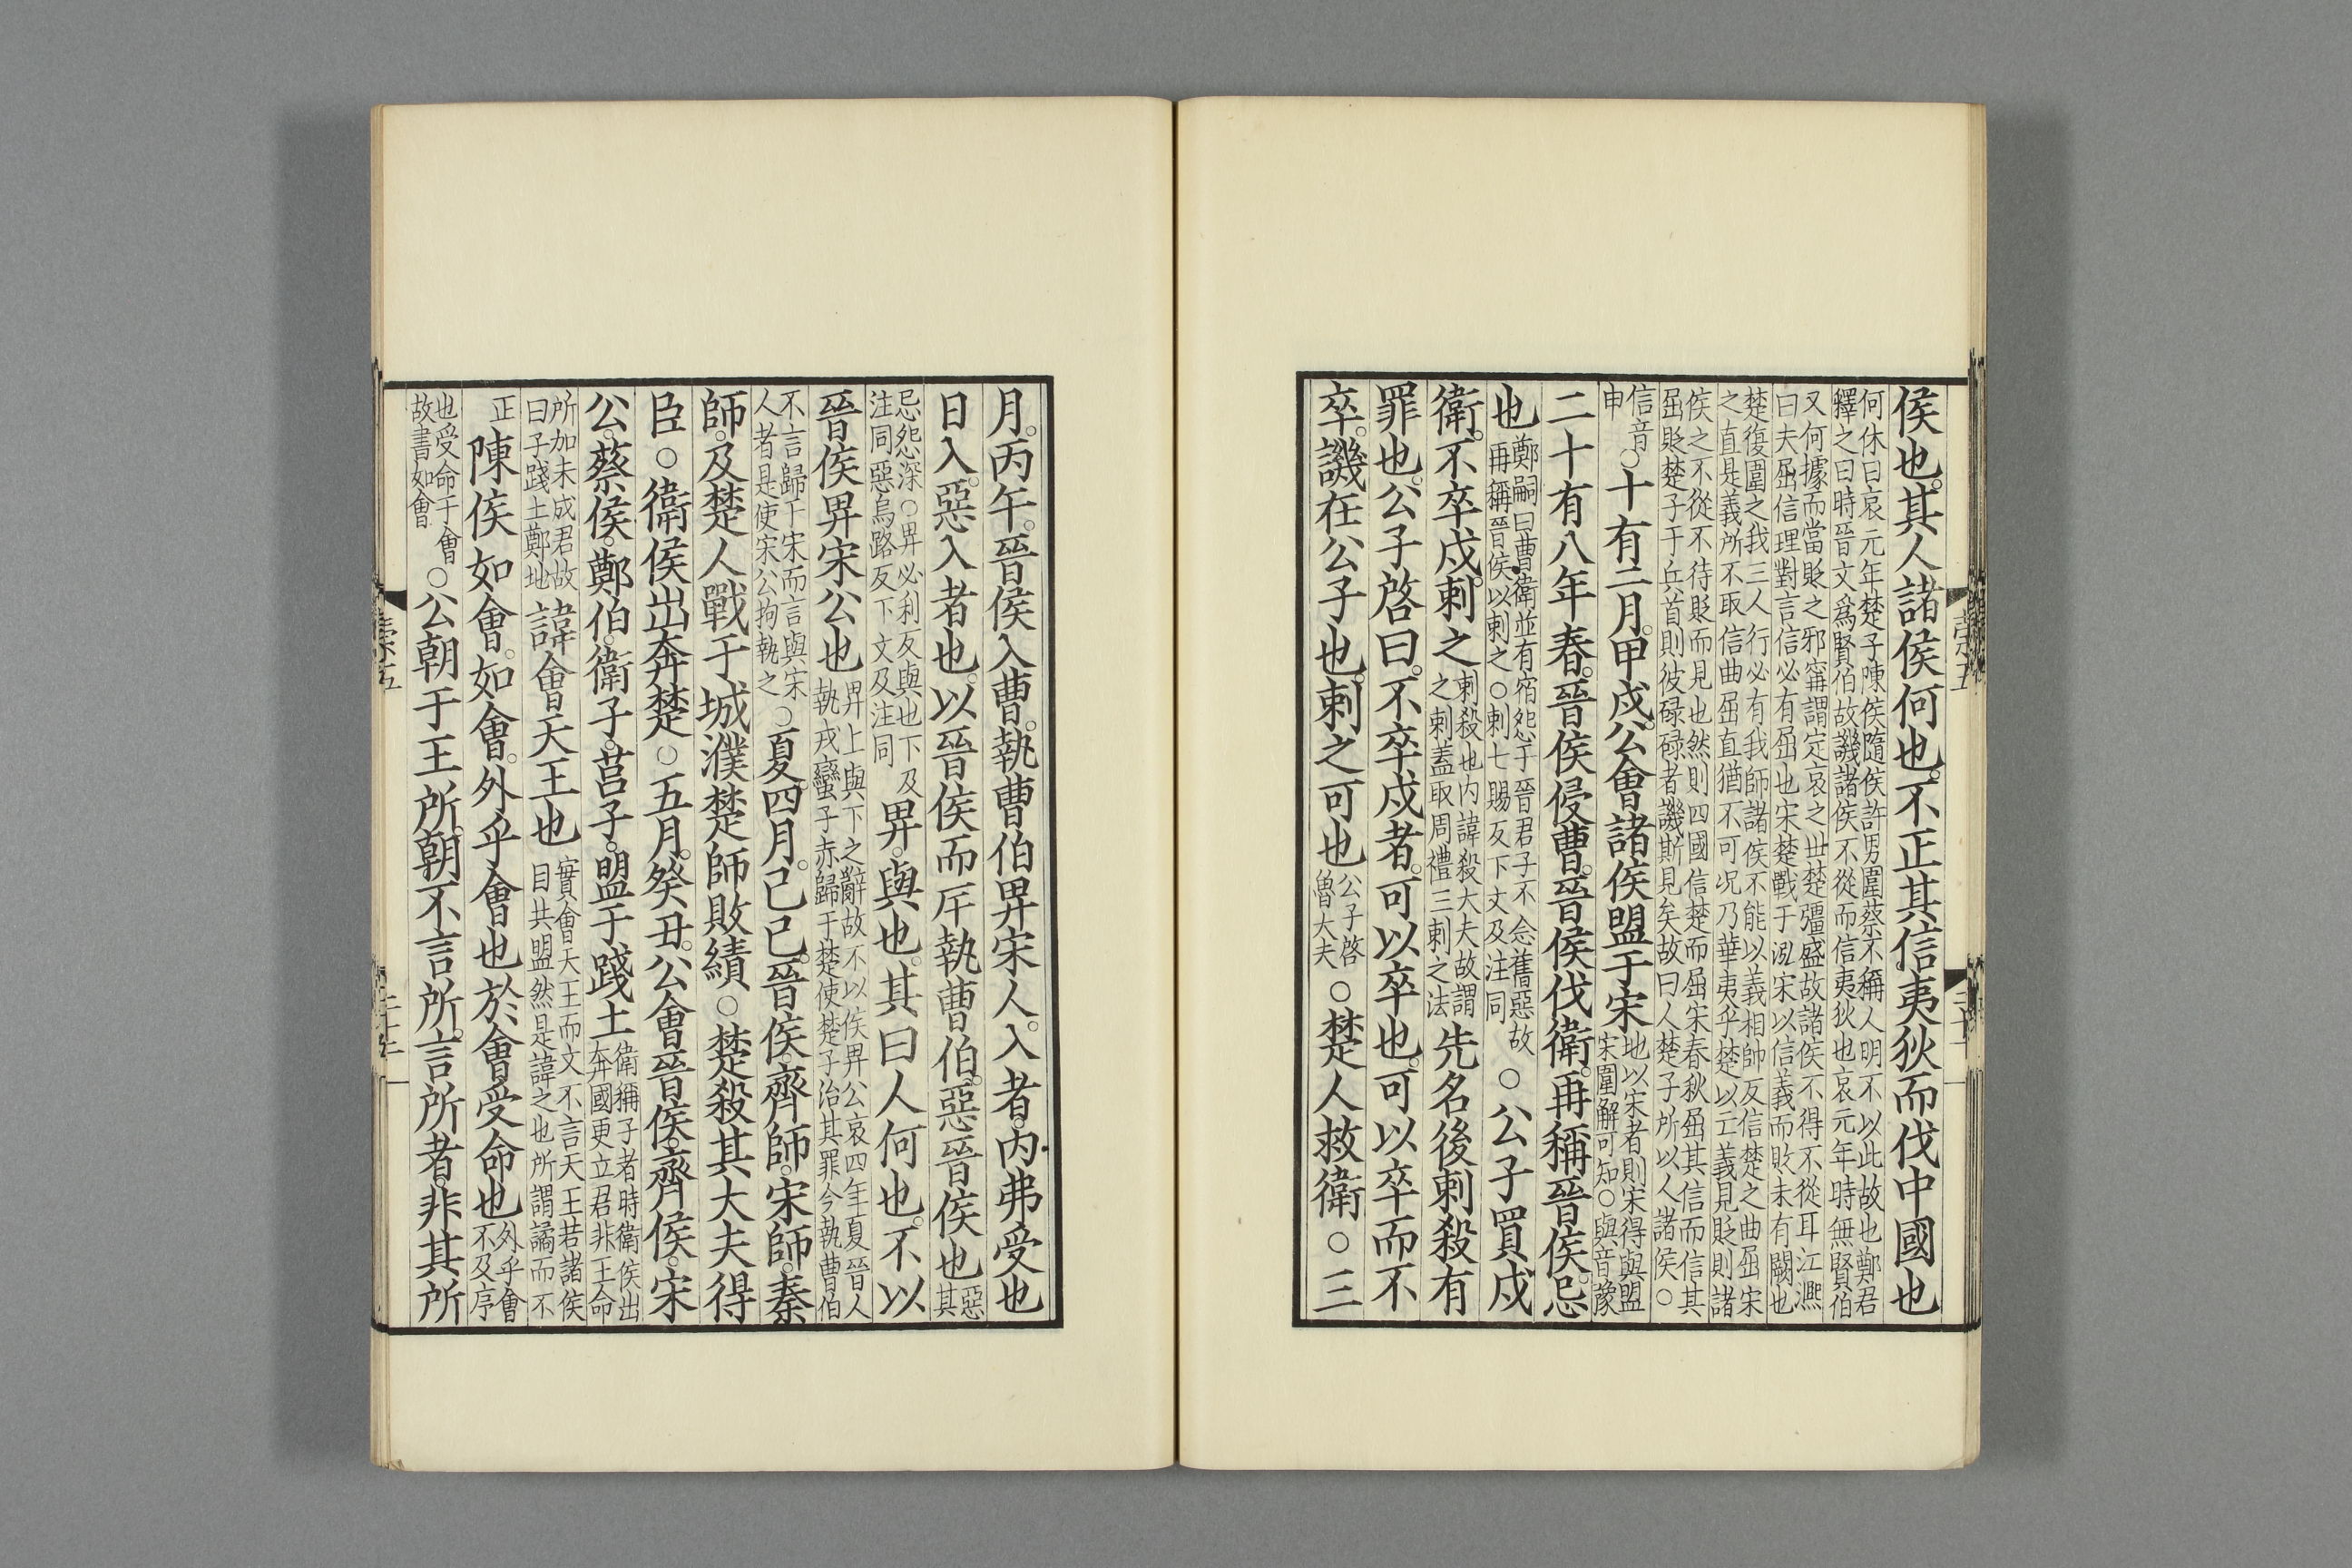 侯也。其人諸侯何也。不正其信夷狄而伐中國也
何休曰哀元年楚子陳侯隨侯許男圍蔡不稱人明不以此故也鄭君
釋之曰時晉文爲賢伯故譏諸侯不從而信夷狄也哀元年時無賢伯
又何據而當貶之邪甯謂定哀之世楚彊盛故諸侯不得不從耳江熙
曰夫屈信理對言信必有屈也宋楚戰于泓宋以信義而敗未有闕也
楚復圍之我三人行必有我師諸侯不能以義相帥反信楚之曲屈宋
之直是義所不取信曲屈直猶不可況乃華夷乎楚以亡義見貶則諸
侯之不從不待貶而見也然則四國信楚而屈宋春秋屈其信而信其
屈貶楚子于兵首則彼碌碌者譏斯見矣故曰人楚子所以人諸侯○
信音
申
○十有二月。甲戌。公會諸侯盟于宋
地以宋者則宋得與盟
宋圍解可知○與音豫
二十有八年春。晉侯侵曹。晉侯伐衛。再稱晉侯。忌
也
鄭嗣曰曹衛並有宿怨于晉君子不念舊惡故
再稱晉侯以刺之○刺七賜反下文及注同
○公子買戍
衛。不卒戍。刺之
刺殺也内諱殺大夫故謂
之刺蓋取周禮三刺之法
先名後刺殺有
罪也。公子啓曰。不卒戍者。可以卒也。可以卒而不
卒。譏在公子也。刺之可也
公子啓
魯大夫
○楚人救衛○三
月。丙午。晉侯入曹。執曹伯畀宋人。入者。内弗受也
日入。惡入者也。以晉侯而斥執曹伯。惡晉侯也
惡
其
忌怨深○畀必利反與也下及
注同惡烏路反下文及注同
畀。與也。其曰人何也。不以
晉侯畀宋公也
畀上與下之辭故不以侯畀公哀四年夏晉人
執戎蠻子赤歸于楚使楚子治其罪今執曹伯
不言歸于宋而言與宋
人者是使宋公拘執之
○夏。四月。己巳。晉侯。齊師。宋師。秦
師。及楚人戰于城濮楚師敗績○楚殺其大夫得
臣○衛侯出奔楚○五月。癸丑。公會晉侯。齊侯。宋
公。蔡侯。鄭伯。衛子。莒子。盟于踐土
衛稱子者時衛侯出
奔國更立君非王命
所加未成君故
曰子踐土鄭地
諱會天王也
實會天王而文不言天王若諸侯
目共盟然是諱之也所謂譎而不
正
陳侯如會。如會。外乎會也於會受命也
外乎會
不及序
也受命于會
故書如會
○公朝于王所。朝不言所。言所者。非其所